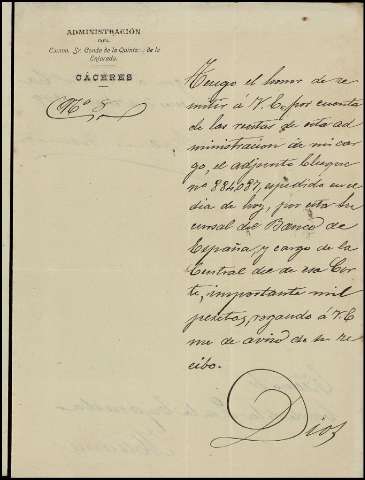 ADMINISTRACIÓN
DEL
Excmo. Sr. Conde de la Quinta de la
Enjarada.
CÁCERES
Nº 8.
Tengo el honor de re-
mitir á V. E., por cuenta
de las rentas de esta ad-
ministracion de mi car-
go, el adjunto cheque
nº 884.087, espedido en el
dia de hoy, por esta su-
cursal del Banco de
España y cargo de la
Central de esa Cor-
te, importante mil
pesetas, rogando á V. E
me de aviso de su re-
cibo.
Dios